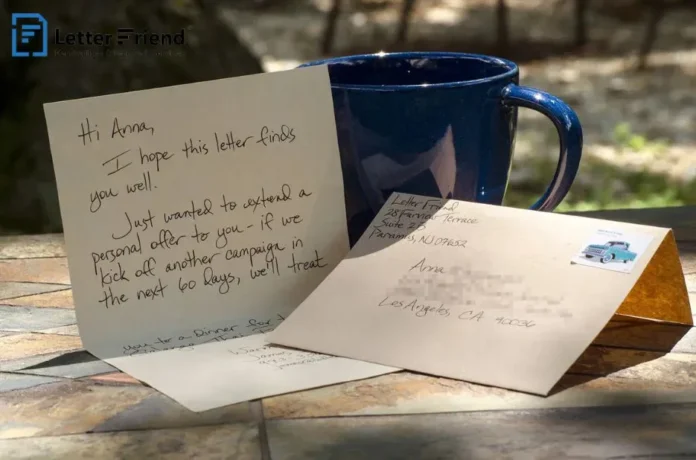 Letter Friend
Hi Anna,
I hope this letter finds
you well.
Just wanted to extend a
personal offer to you - if we
kick off another campaign in
the next 60 days, we'll treat
you to a Dinner for
Letter Friend
Terrace
Suite 2B
Paramus, NJ 07652
Anna
Los Angeles, CA 90036